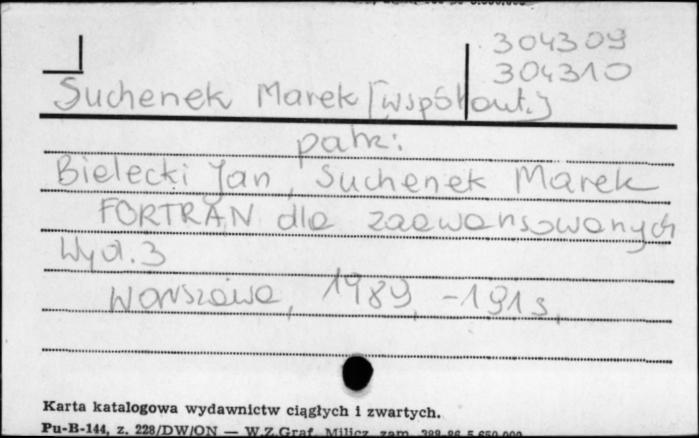 304309
304310
Suchenek Marek [współaut.]
patrz:
Bielecki Jan, Suchenek Marek
FORTRAN dla zaawansowanych
Wyd. 3
Warszawa, 1989, - 191 s.
Karta katalogowa wydawnictw ciągłych i zwartych.
Pu-B-144, z. 228/DW/ON — W.Z.Graf. Milicz, zam. 388-86 5.650.000